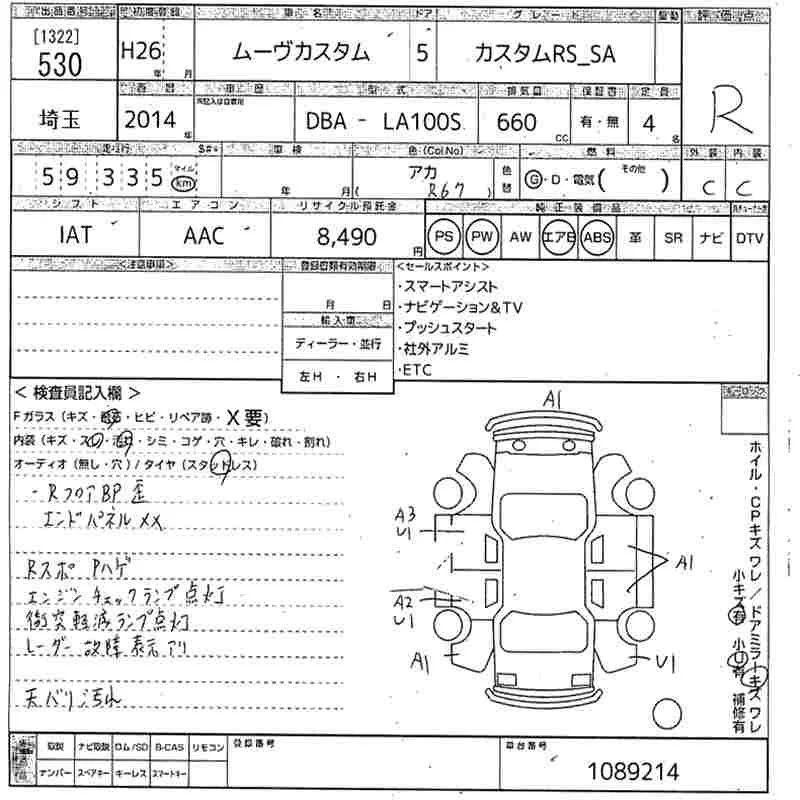 出品番号 初度登録 車名 ドア グレード 駆動 評価点
[1322]
530 H26 年 月 ムーヴカスタム 5 カスタムRS_SA R
車歴 型式 排気量 保証書 定員
埼玉 2014 年 DBA - LA100S 660 cc 有・無 4 名
走行 車検 色(Col No) 燃料 外装 内装
59335 マイル km 年 月 アカ ( R67 ) 色替 G・D・電気( その他 ) C C
シフト エアコン リサイクル預託金 純正装備品
IAT AAC 8,490 円 PS PW AW エアB ABS 革 SR ナビ DTV
<注意車両> 登録書類有効期限 <セールスポイント>
・スマートアシスト
月 日 ・ナビゲーション&TV
輸入車 ・プッシュスタート
ディーラー・並行 ・社外アルミ
左H ・ 右H ・ETC
< 検査員記入欄 >
Fガラス(キズ・ ・ヒビ・リペア跡・X要)
内装(キズ・スレ・汚れ・シミ・コゲ・穴・キレ・破れ・割れ)
オーディオ(無し・穴)/タイヤ(スタッドレス)
・RフロアBP歪
エンドパネルXX
RスポPハゲ
エンジンチェックランプ点灯
衝突軽減ランプ点灯
レーダー故障表示アリ
天バリ汚れ
A1
A3
U1
A1
A2
U1
A1
U1
ホイル・CPキズワレ/ドアミラーキズワレ
小キズ有 小U有 補修有
取説 ナビ取説 ロム/SD B-CAS リモコン 登録番号 車台番号
ナンバー スペアキー キーレス スマートキー 1089214